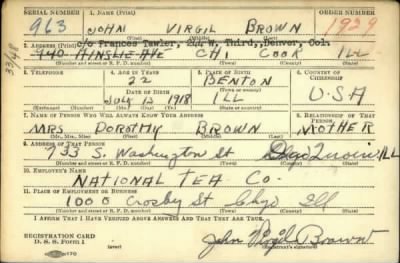 SERIAL NUMBER 1. NAME (Print) ORDER NUMBER
963 JOHN VIRGIL BROWN 1929
2. ADDRESS (Print) c/o Frances Lawler, 244 W. Third, Denver, Col.
940 AINSLIE AVE CHI COOK ILL
(Number and street or R. F. D. number) (Town) (County) (State)
3. TELEPHONE 4. AGE IN YEARS 5. PLACE OF BIRTH 6. COUNTRY OF CITIZENSHIP
22 BENTON
DATE OF BIRTH U.S.A
JULY 13 1918 ILL
(Mo.) (Day) (Yr.) (State or country)
7. NAME OF PERSON WHO WILL ALWAYS KNOW YOUR ADDRESS 8. RELATIONSHIP OF THAT PERSON
MRS DOROTHY BROWN MOTHER
(Mr., Mrs., Miss) (First) (Middle) (Last)
9. ADDRESS OF THAT PERSON
733 S. Washington St ILL
(Number and street or R. F. D. number) (Town) (County) (State)
10. EMPLOYER'S NAME
NATIONAL TEA Co.
11. PLACE OF EMPLOYMENT OR BUSINESS
1000 Crosby St Chgo Ill
(Number and street or R. F. D. number) (Town) (County) (State)
I AFFIRM THAT I HAVE VERIFIED ABOVE ANSWERS AND THAT THEY ARE TRUE.
REGISTRATION CARD
D. S. S. Form 1 John Virgil Brown
(Registrant's signature)